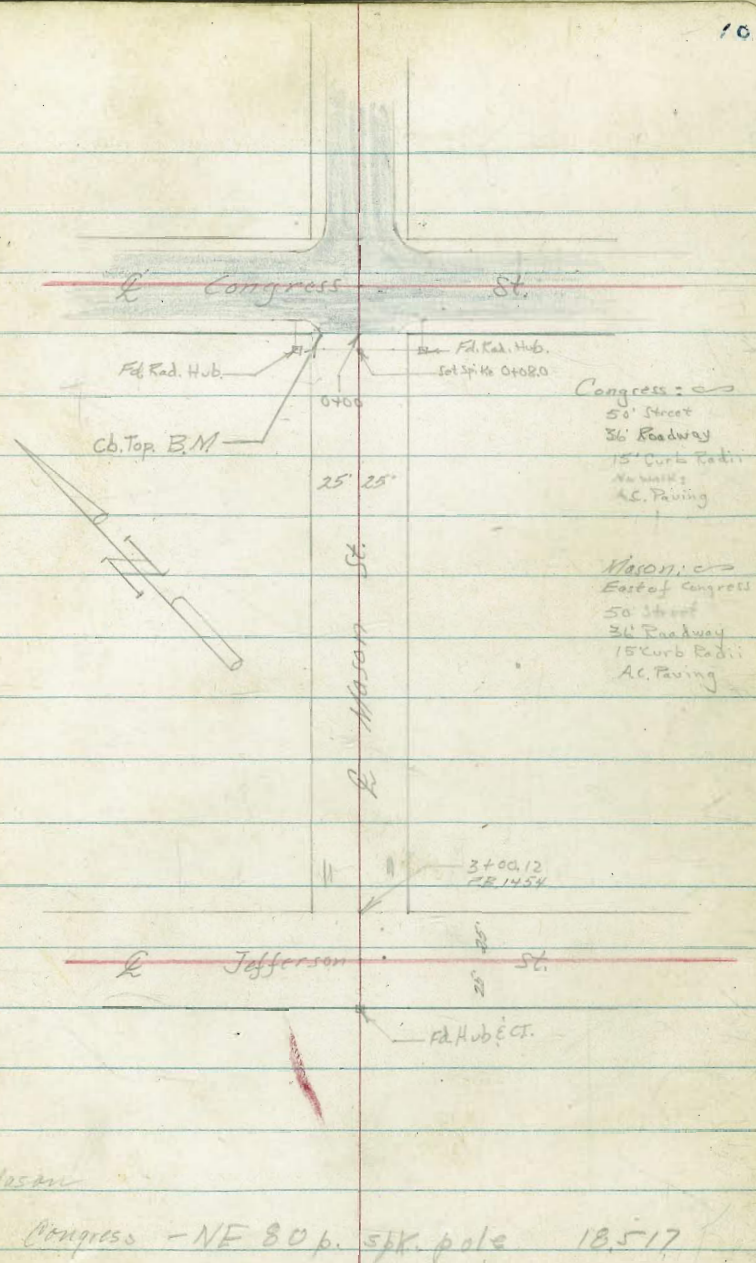 10
℄ Congress St.
Fd. Rad. Hub.
Fd. Rad. Hub.
Set Spike 0+08.0
0+00
Cb. Top. B.M.
Congress:
50' Street
36' Roadway
15' Curb Radii
No Walks
A.C. Paving
25' 25'
N
℄ Mason St.
Mason:
East of Congress
50' Street
36' Roadway
15' Curb Radii
A.C. Paving
" "
3+00.12
1454
℄ Jefferson St.
25' 25'
Fd. Hub & CT.
Mason
Congress - NE 80p. spk. pole 18.517